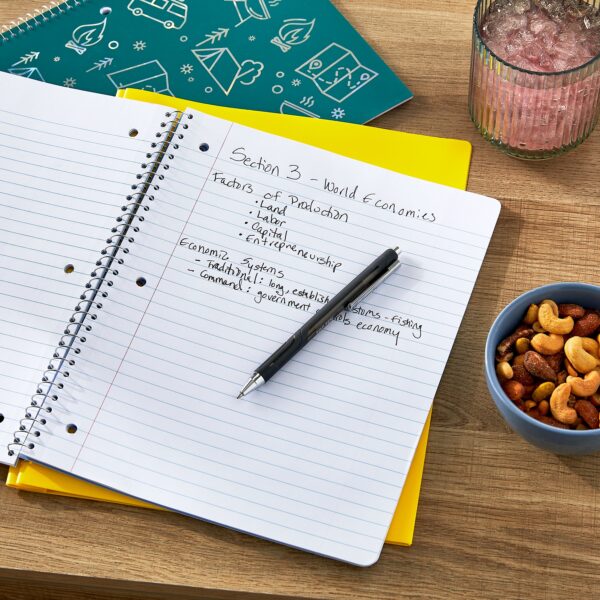 Section 3 - World Economies
Factors of Production
• Land
• Labor
• Capital
• Entrepreneurship
Economic Systems
- Traditional: long, establis customs - fishing
- Command: government economy)